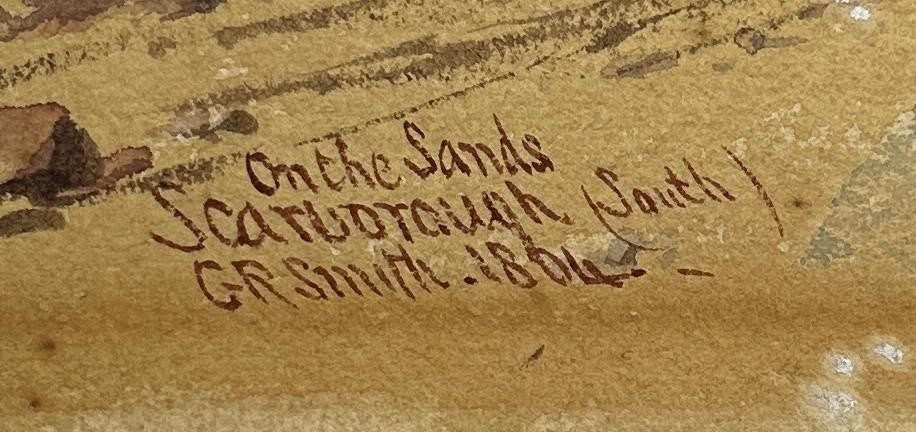 On the Sands
Scarborough (South)
G R Smith. 1804